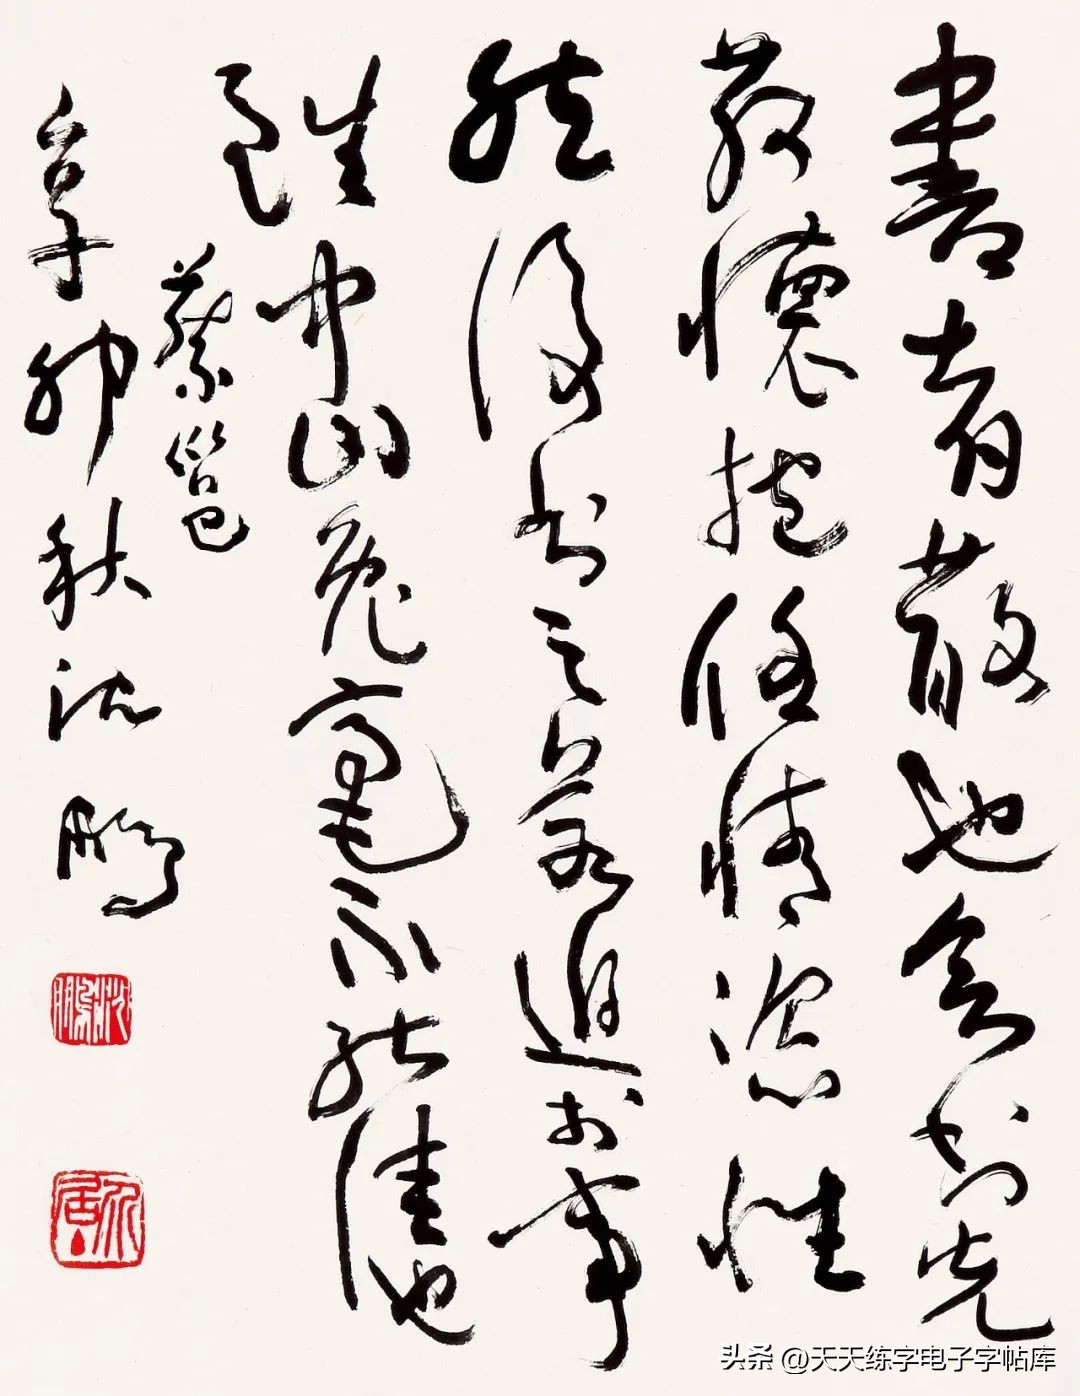 書者散也欲书先
散懷抱任情恣性
然後书之若迫於事
雖中山兔毫不能佳也
蔡邕
辛卯秋沈鹏
沈鹏
介居
头条 @天天练字电子字帖库